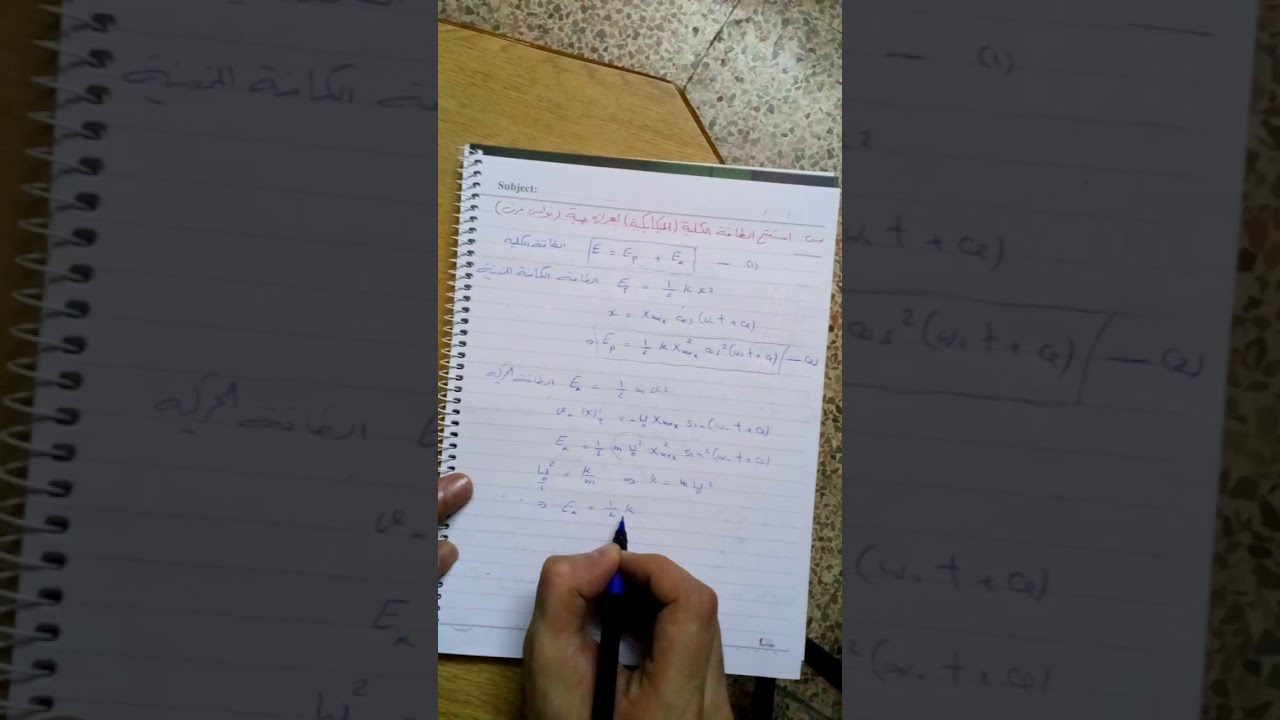 Subject:
استنتج الطاقة الكلية (الميكانيكية) لهزازة جيبية (نواس مرن)
الطاقة الكلية E = Eₚ + Eₖ — (1)
الطاقة الكامنة المرونية Eₚ = 1/2 k x²
x = Xmax cos(ω₀t + φ)
⇒ Eₚ = 1/2 k X²max cos²(ω₀t + φ) — (2)
الطاقة الحركية Eₖ = 1/2 m v²
v = (x)'ₜ = -ω₀ Xmax sin(ω₀t + φ)
Eₖ = 1/2 m ω₀² X²max sin²(ω₀t + φ)
ω₀² = k/m ⇒ k = m ω₀²
⇒ Eₖ = 1/2 k